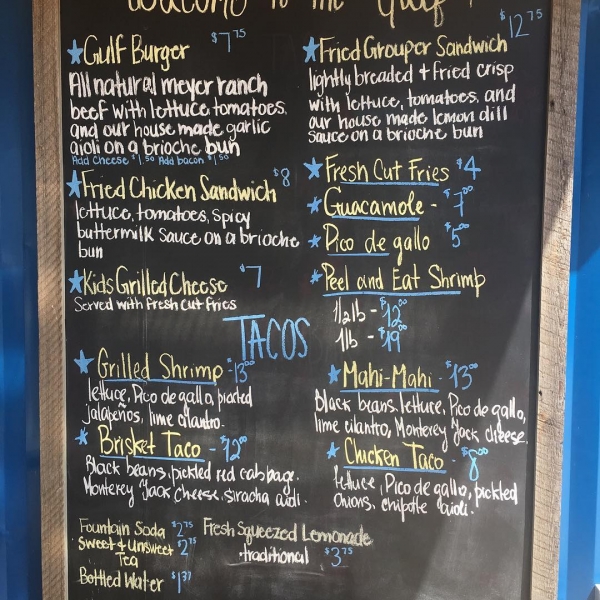 Welcome to the Gulf!
★Gulf Burger $7.75
All natural meyer ranch
beef with lettuce, tomatoes,
and our house made garlic
aioli on a brioche bun
Add Cheese $1.50 Add bacon $1.50
★Fried Chicken Sandwich $8
lettuce, tomatoes, spicy
buttermilk sauce on a brioche
bun
★Kids Grilled Cheese $7
Served with fresh cut fries
★Fried Grouper Sandwich $12.75
lightly breaded + fried crisp
with lettuce, tomatoes, and
our house made lemon dill
sauce on a brioche bun
★Fresh Cut Fries $4
★Guacamole - $7.00
★Pico de gallo $5.00
★Peel and Eat Shrimp
1/2lb - $12.00
1lb - $19.00
TACOS
★Grilled Shrimp - $13.00
lettuce, Pico de gallo, pickled
jalapeños, lime cilantro.
★Brisket Taco - $12.00
Black beans, pickled red cabbage,
Monterey Jack Cheese, siracha aioli.
★Mahi-Mahi - $13.00
Black beans, lettuce, Pico de gallo,
lime cilantro, Monterey Jack cheese.
★Chicken Taco - $8.00
lettuce, Pico de gallo, pickled
onions, chipotle aioli.
Fountain Soda $2.75
Sweet + Unsweet $2.75
Tea
Bottled Water $1.37
Fresh Squeezed Lemonade
traditional $3.75